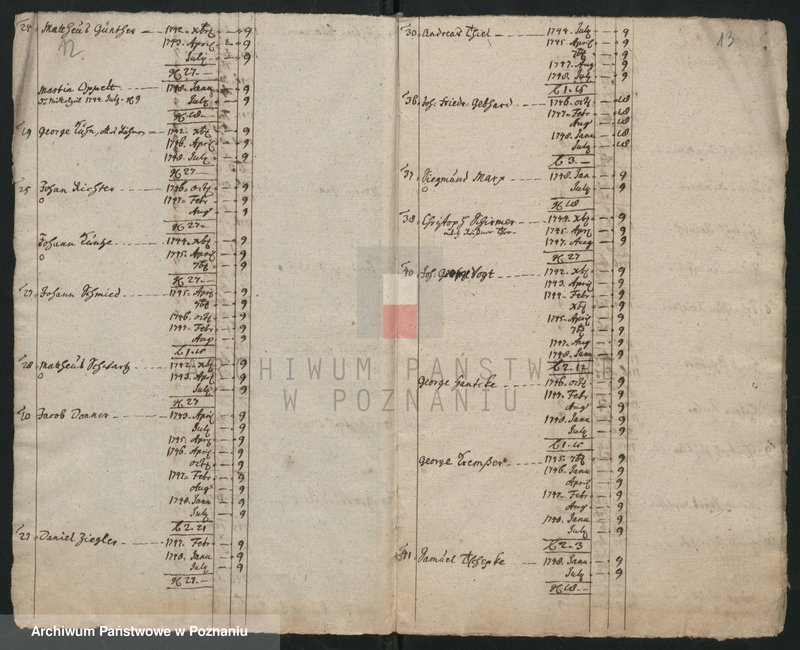 24 Mattheus Günther — 1742. xbr — 9
12.
1743. April — 9
July — 9
27 —
Martin Oppelt — 1748. Janu — 9
1744. July 9
July — 9
George — 1742. xbr — 9
1746. April — 9
1748. July — 9
27 —
25 Johan Richter — 1746. octb — 9
1747. Febr — 9
Aug — 9
27 —
Johann — 1744. xbr — 9
1745. April — 9
7br — 9
27 —
27 Johann Schmied — 1745. April — 9
7br — 9
1746. octb — 9
1747. Febr — 9
Aug — 9
28 Mattheus — 1742. xbr — 9
1743. Apr — 9
July — 9
27
Jacob Donner — 1743. April — 9
July — 9
1745. April — 9
1746. April — 9
octb — 9
1747. Febr — 9
Aug — 9
1748. Janu — 9
July — 9
2 - 21
29 Daniel Ziegler — 1747. Febr — 9
1748. Janu — 9
July — 9
27 —
13
30 Andreas Thiel — 1744. July — 9
1745. April — 9
7br — 9
1747. Aug — 9
1748. July — 9
Joh. Friedr. Gebhard — 1746. octb — 18
1747. Febr — 18
Aug — 18
1748. Janu — 18
July — 18
3 —
37 Siegmund Marx — 1748. Jan — 9
July — 9
18
38 Christoph — 1744. xbr — 9
1745. Apr — 9
1747. Aug — 9
27
40 Joh. George Vogt — 1742. xbr — 9
1743. April — 9
1744. Febr — 9
xbr — 9
1745. April — 9
7br — 9
1747. Aug — 9
1748. Janu — 9
2 - 12
George — 1746. octb — 9
1747. Febr — 9
Aug — 9
1748. Janu — 9
July — 9
George — 1745. 7br — 9
1746. Janu — 9
April — 9
1747. Febr — 9
Aug — 9
1748. Janu — 9
July — 9
2 - 3
41 Samuel — 1748. Janu — 9
July — 9
18 —
ARCHIWUM PAŃSTWOWE
W POZNANIU
Archiwum Państwowe w Poznaniu